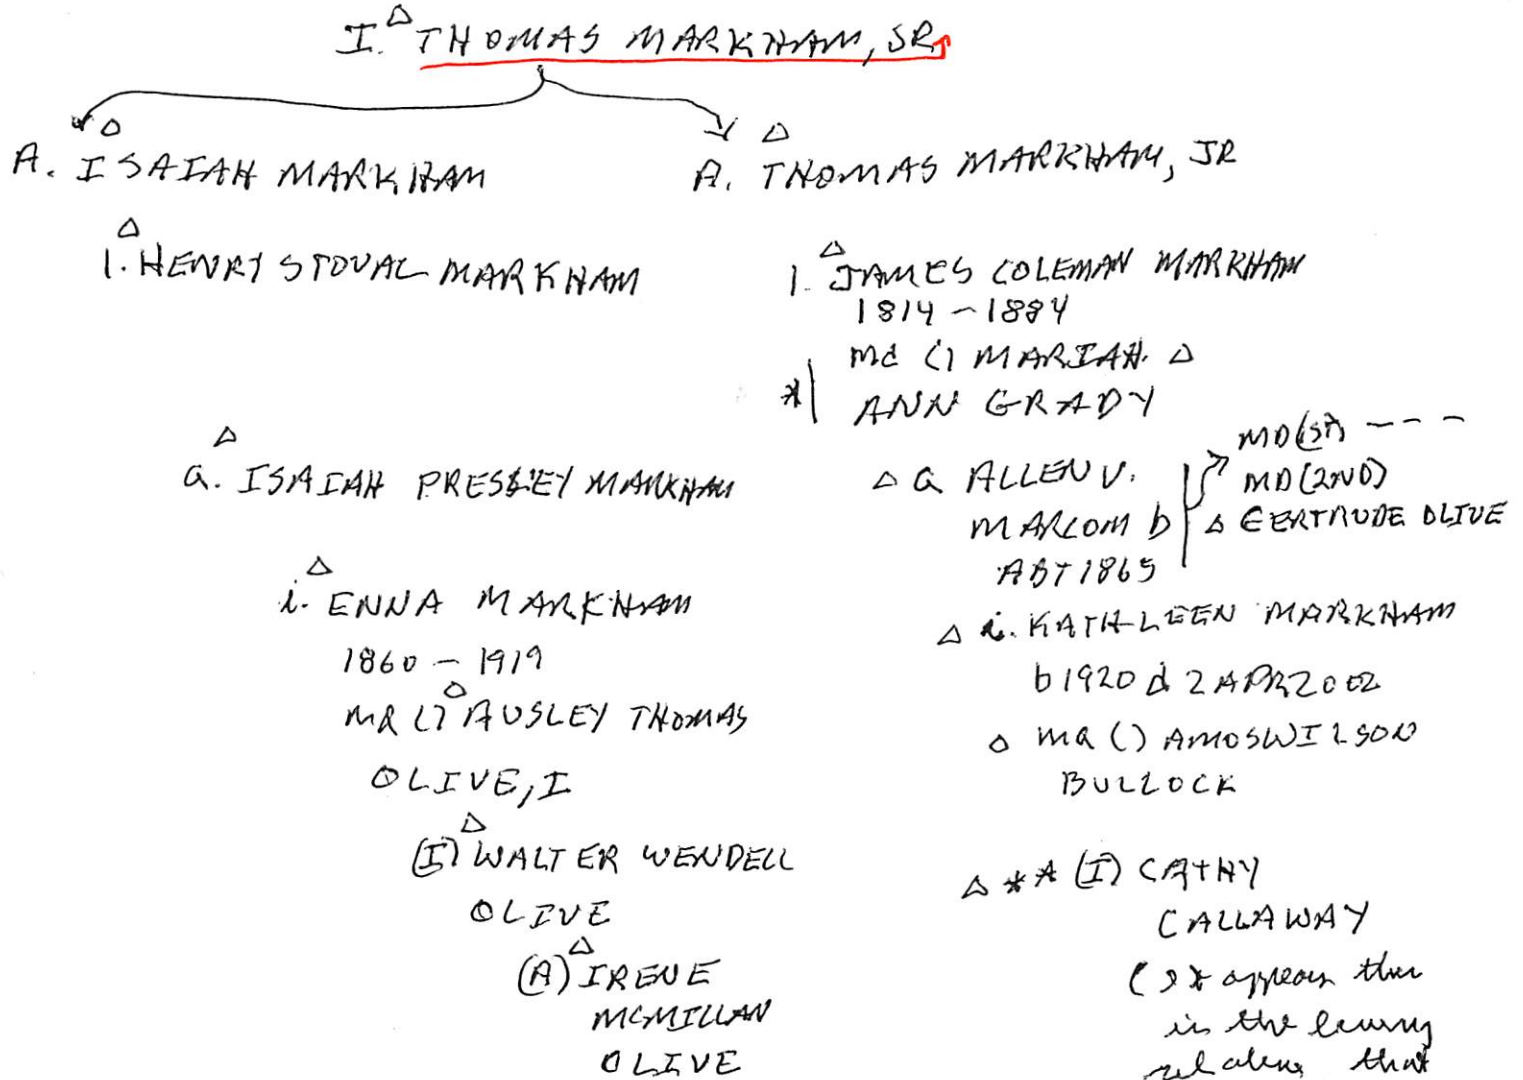 I. THOMAS MARKHAM, SR.
A. ISAIAH MARKHAM
1. HENRY STOVAL MARKHAM
a. ISAIAH PRESLEY MARKHAM
i. ENNA MARKHAM
1860 - 1919
md () AUSLEY THOMAS
OLIVE, I
(I) WALTER WENDELL
OLIVE
(A) IRENE
MCMILLAN
OLIVE
A. THOMAS MARKHAM, JR
1. JAMES COLEMAN MARKHAM
1814 - 1884
md () MARIAH
* ANN GRADY
a ALLEN V.
MARCOM b
ABT 1865
MD (1ST) - - -
MD (2ND)
GERTRUDE OLIVE
i. KATHLEEN MARKHAM
b 1920 d 2 APR 2002
md () AMOS WILSON
BULLOCK
** (I) CATHY
CALLAWAY
appears this
in the
that